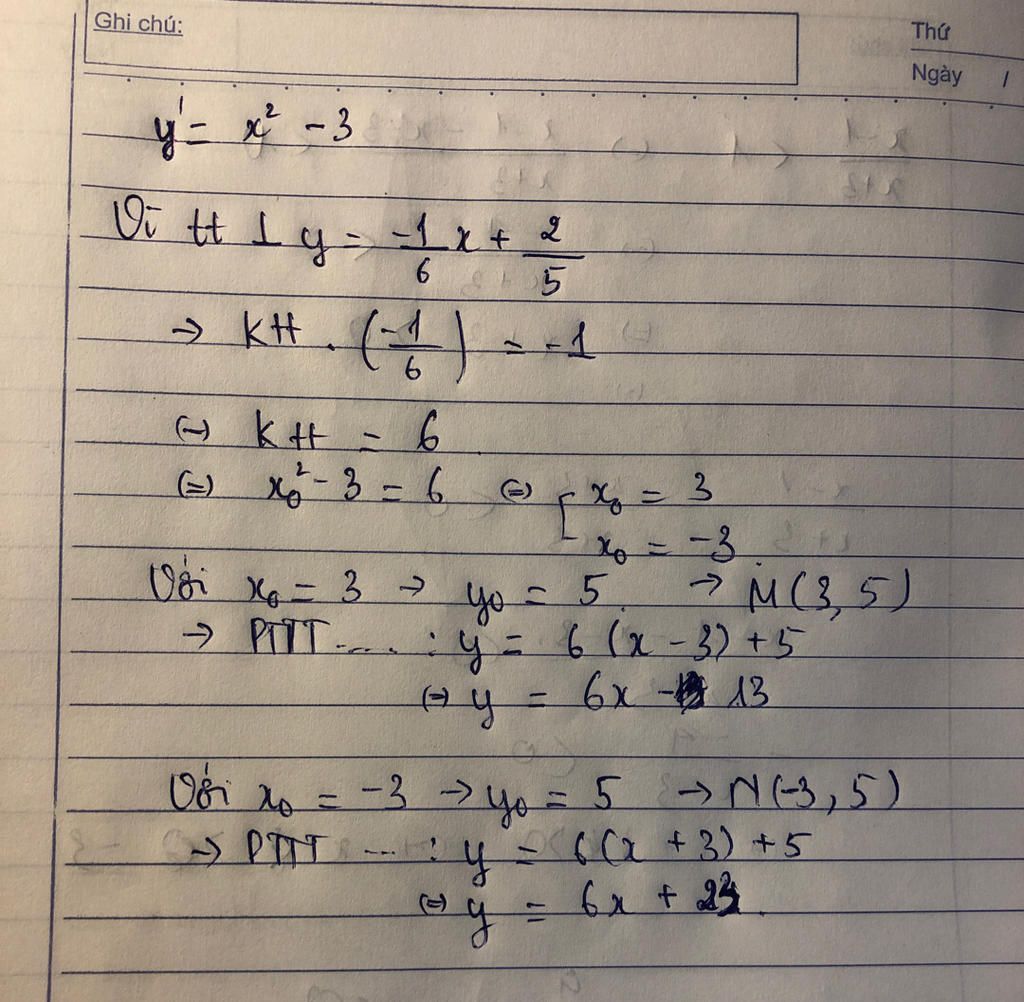 Ghi chú:
Thứ
Ngày /
y' = x² - 3
Vì tt ⊥ y = -1/6 x + 2/5
→ Ktt . (-1/6) = -1
(→) Ktt = 6
(=) x₀² - 3 = 6 (=) [ x₀ = 3
x₀ = -3
Với x₀ = 3 → y₀ = 5 → M(3, 5)
→ PTTT .... : y = 6 (x - 3) + 5
(=) y = 6x - 13
Với x₀ = -3 → y₀ = 5 → N(-3, 5)
→ PTTT .... : y = 6(x + 3) + 5
(=) y = 6x + 23.